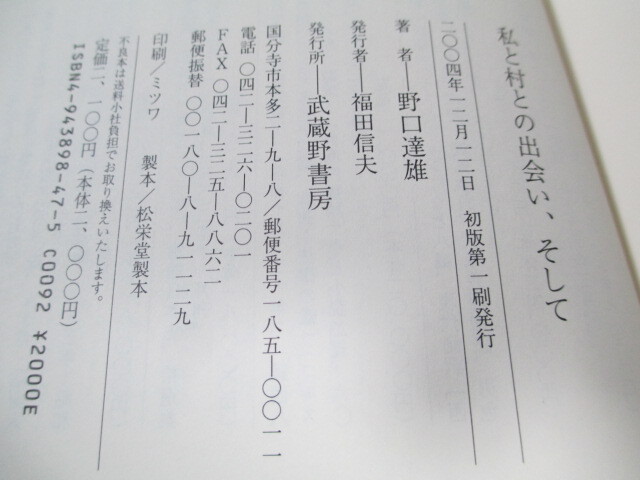 私と村との出会い、そして
二〇〇四年一二月一二日　初版第一刷発行
著　者──野口達雄
発行者──福田信夫
発行所──武蔵野書房
国分寺市本多二―九―八／郵便番号一八五―〇〇一一
電話　〇四二―三二六―〇二〇一
FAX　〇四二―三二五―八八六二
郵便振替　〇〇一八〇―八―九一一二九
印刷／ミツワ　製本／松栄堂製本
不良本は送料小社負担でお取り換えいたします。
定価二、一〇〇円（本体二、〇〇〇円）
ISBN4-943898-47-5 C0092 ¥2000E